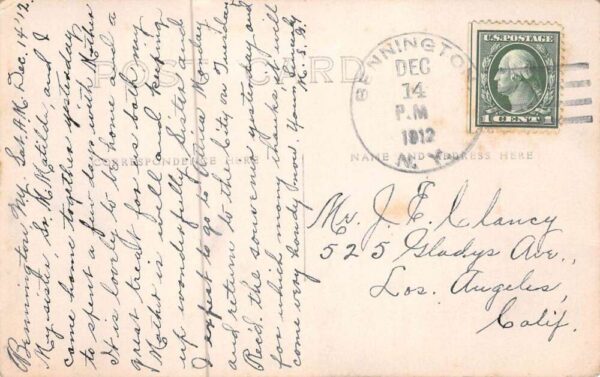 Bennington N.Y. Sat. A.M. Dec. 14 '12.
My sister, Sr. M. Matilda, and I
came home together yesterday
to spent a few days with Mother
It is lovely to be home and a
great treat for us both, my
Mother is well and keeping
up wonderfully. Sister and
I expect to go to Attica Monday
and return to the City on Tuesday
Rec'd. the souvenir yesterday and
for which many thanks. It will
come very handy now. Yours Sincerely
M. S. G.
POST CARD
CORRESPONDENCE HERE
NAME AND ADDRESS HERE
BENNINGTON
DEC
14
P.M
1912
N.Y.
U.S. POSTAGE
1 CENT 1
Mr. J. E. Clancy
525 Gladys Ave.,
Los. Angeles,
Calif.